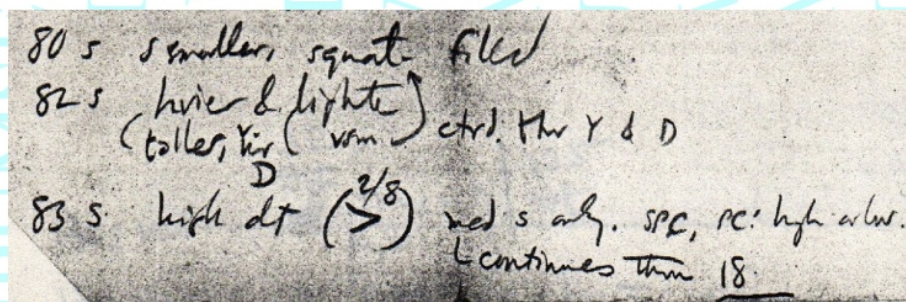 80 s smaller, squat filled
82 s hvier & lighter
(taller, ctrd. thr Y & D
D
83 s high dt (> 2/8) med s only. SPC, PC: high or low.
continues thru 18